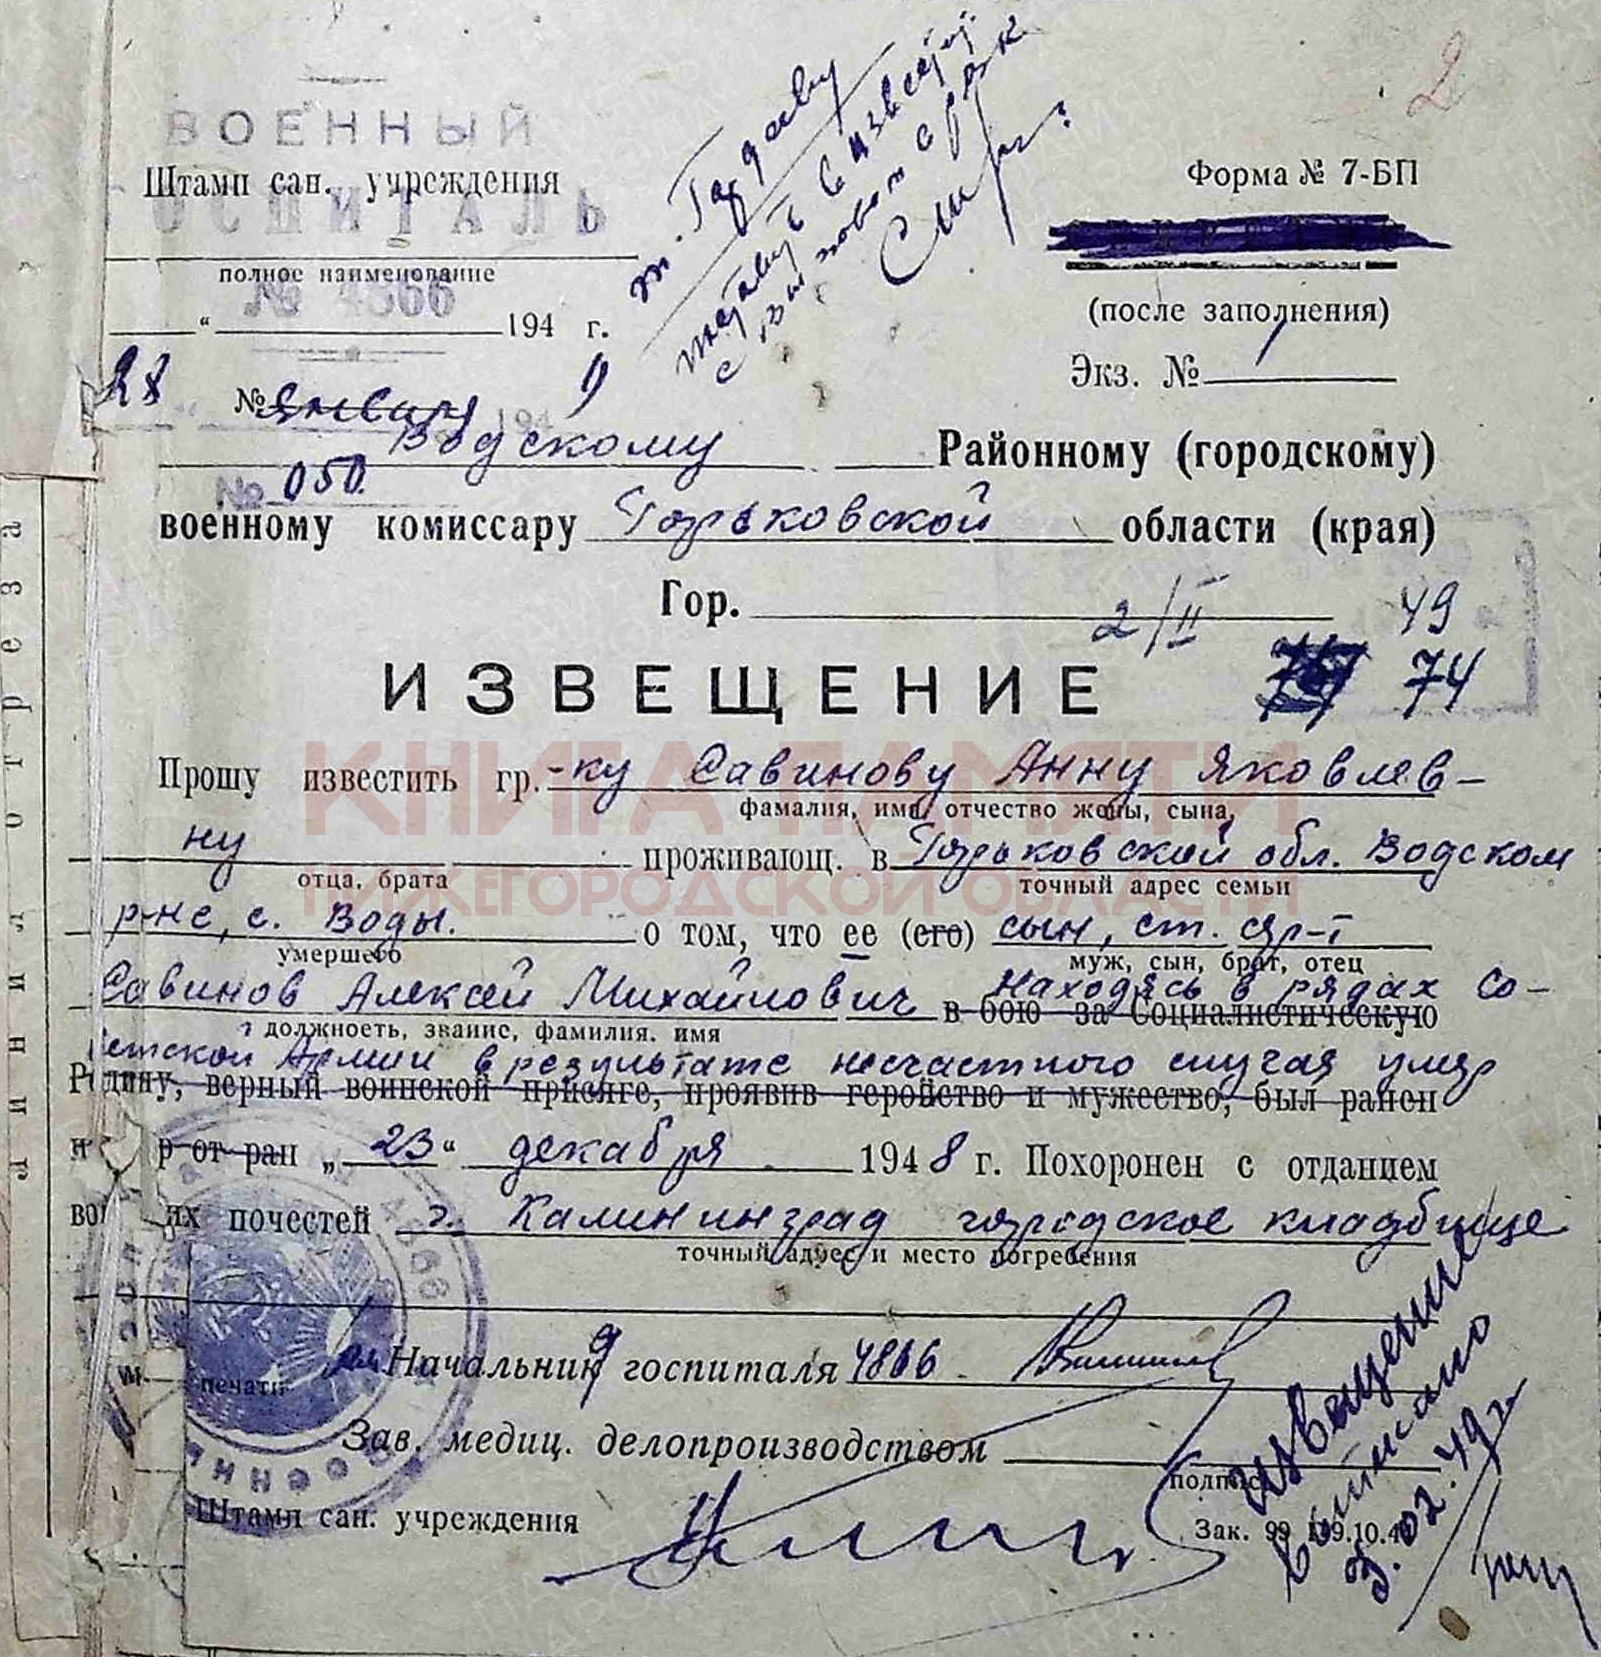 2
ВОЕННЫЙ
Штамп сан. учреждения
ГОСПИТАЛЬ
Форма № 7-БП
полное наименование
№ 4866
(после заполнения)
„ “ 194 г.
Экз. № 1
28 № января 194 9
Водскому Районному (городскому)
№ 050.
военному комиссару Горьковской области (края)
Гор.
2/II 49
ИЗВЕЩЕНИЕ 74
Прошу известить гр.-ку Савинову Анну Яковлев-
фамалия, имя, отчество жены, сына,
ну проживающ. в Горьковской обл. Водском
отца, брата точный адрес семьи
р-не, с. Воды. о том, что ее (его) сын, ст. с-р-т
умершего муж, сын, брат, отец
Савинов Алексей Михайлович находясь в рядах Со-
в бою за Социалистическую
должность, звание, фамилия. имя
ветской Армии в результате несчастного случая умер
Родину, верный воинской присяге, проявив геройство и мужество, был ранен
и р от ран „23“ декабря 1948 г. Похоронен с отданием
воинских почестей г. Калининград городское кладбище
точный адрес и место погребения
Начальник госпиталя 4866.
м. печати
Зав. медиц. делопроизводством
подпись
Штамп сан. учреждения
Зак. 99
Извещение
выписано
3.02.49 г.
Линия отреза
КНИГА ПАМЯТИ
НИЖЕГОРОДСКОЙ ОБЛАСТИ